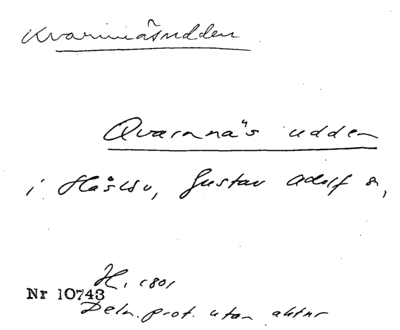 Kvarnnäsudden
Qvarnnäs udden
i Gustav Adolf s,
H. 1801
Nr 10743
Deln. prot. utan aktnr